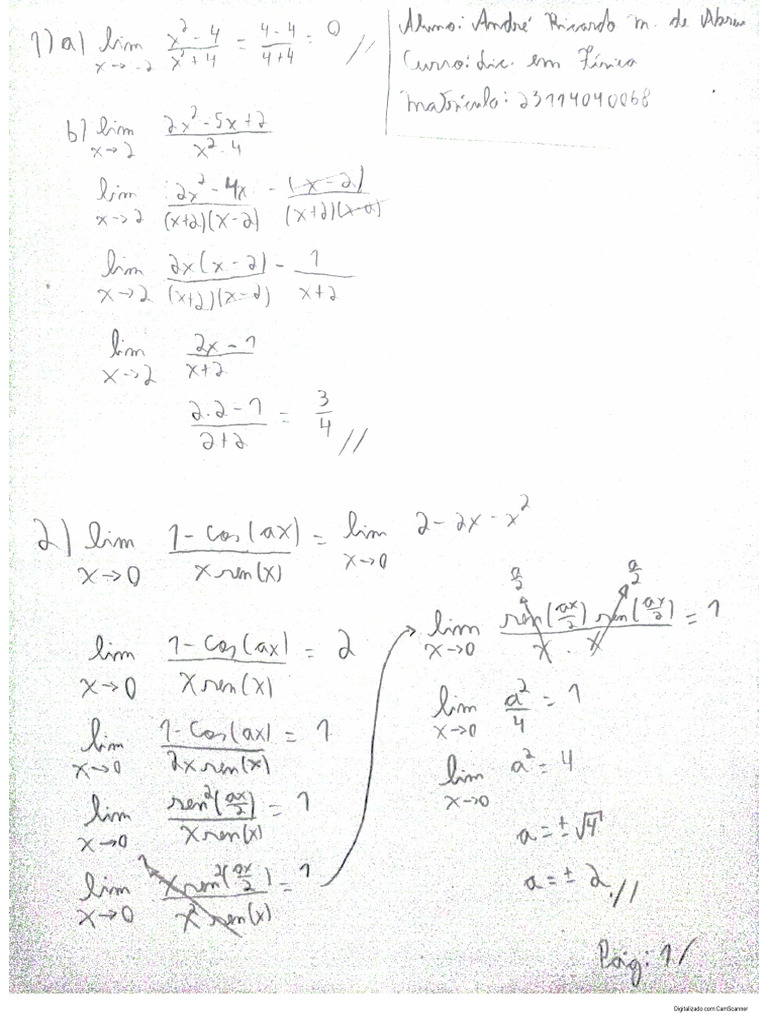 1) a) lim x→-2 (x² - 4)/(x² + 4) = (4 - 4)/(4 + 4) = 0 //
Aluno: André Ricardo M. de Abreu
Curso: Lic. em Física
Matrícula: 23114040068
b) lim x→2 (2x² - 5x + 2)/(x² - 4)
lim x→2 (2x² - 4x)/((x+2)(x-2)) - (x-2)/((x+2)(x-2))
lim x→2 2x(x-2)/((x+2)(x-2)) - 1/(x+2)
lim x→2 (2x - 1)/(x+2)
(2.2 - 1)/(2+2) = 3/4 //
2) lim x→0 (1 - cos(ax))/(x sen(x)) = lim x→0 2 - 2x - x²
lim x→0 (1 - cos(ax))/(x sen(x)) = 2
lim x→0 (1 - cos(ax))/(2x sen(x)) = 1
lim x→0 sen²(ax/2)/(x sen(x)) = 1
lim x→0 x sen²(ax/2)/(x² sen(x)) = 1
1
a/2 a/2
lim x→0 (sen(ax/2) sen(ax/2))/(x . x) = 1
lim x→0 a²/4 = 1
lim x→0 a² = 4
a = ±√4
a = ± 2 //
Pág: 1/
Digitalizado com CamScanner